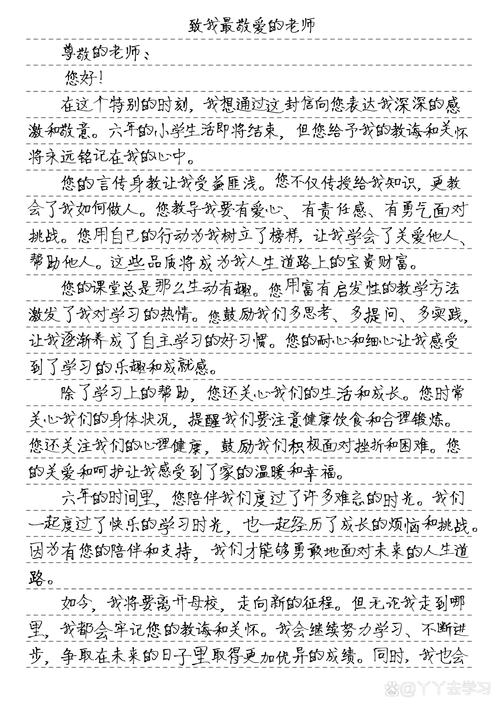 致我最敬爱的老师
尊敬的老师：
您好！
在这个特别的时刻，我想通过这封信向您表达我深深的感
激和敬意。六年的小学生活即将结束，但您给予我的教诲和关怀
将永远铭记在我的心中。
您的言传身教让我受益匪浅。您不仅传授给我知识，更教
会了我如何做人。您教导我要有爱心、有责任感、有勇气面对
挑战。您用自己的行动为我树立了榜样，让我学会了关爱他人、
帮助他人。这些品质将成为我人生道路上的宝贵财富。
您的课堂总是那么生动有趣。您用富有启发性的教学方法
激发了我对学习的热情。您鼓励我们多思考、多提问、多实践，
让我逐渐养成了自主学习的好习惯。您的耐心和细心让我感受
到了学习的乐趣和成就感。
除了学习上的帮助，您还关心我们的生活和成长。您时常
关心我们的身体状况，提醒我们要注意健康饮食和合理锻炼。
您还关注我们的心理健康，鼓励我们积极面对挫折和困难。您
的关爱和呵护让我感受到了家的温暖和幸福。
六年的时间里，您陪伴我们度过了许多难忘的时光。我们
一起度过了快乐的学习时光，也一起经历了成长的烦恼和挑战。
因为有您的陪伴和支持，我们才能够勇敢地面对未来的人生道
路。
如今，我将要离开母校，走向新的征程。但无论我走到哪
里，我都会牢记您的教诲和关怀。我会继续努力学习、不断进
步，争取在未来的日子里取得更加优异的成绩。同时，我也会
@丫丫去学习